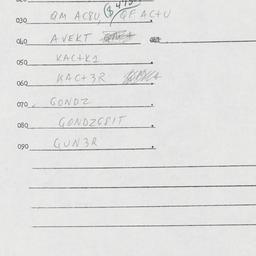 030 QM AC8U, QF AC+U
040 AVEKT
050 KAC+K1
060 KAC+3R
070 GONDZ
080 GONDZGSIT
090 GUN3R